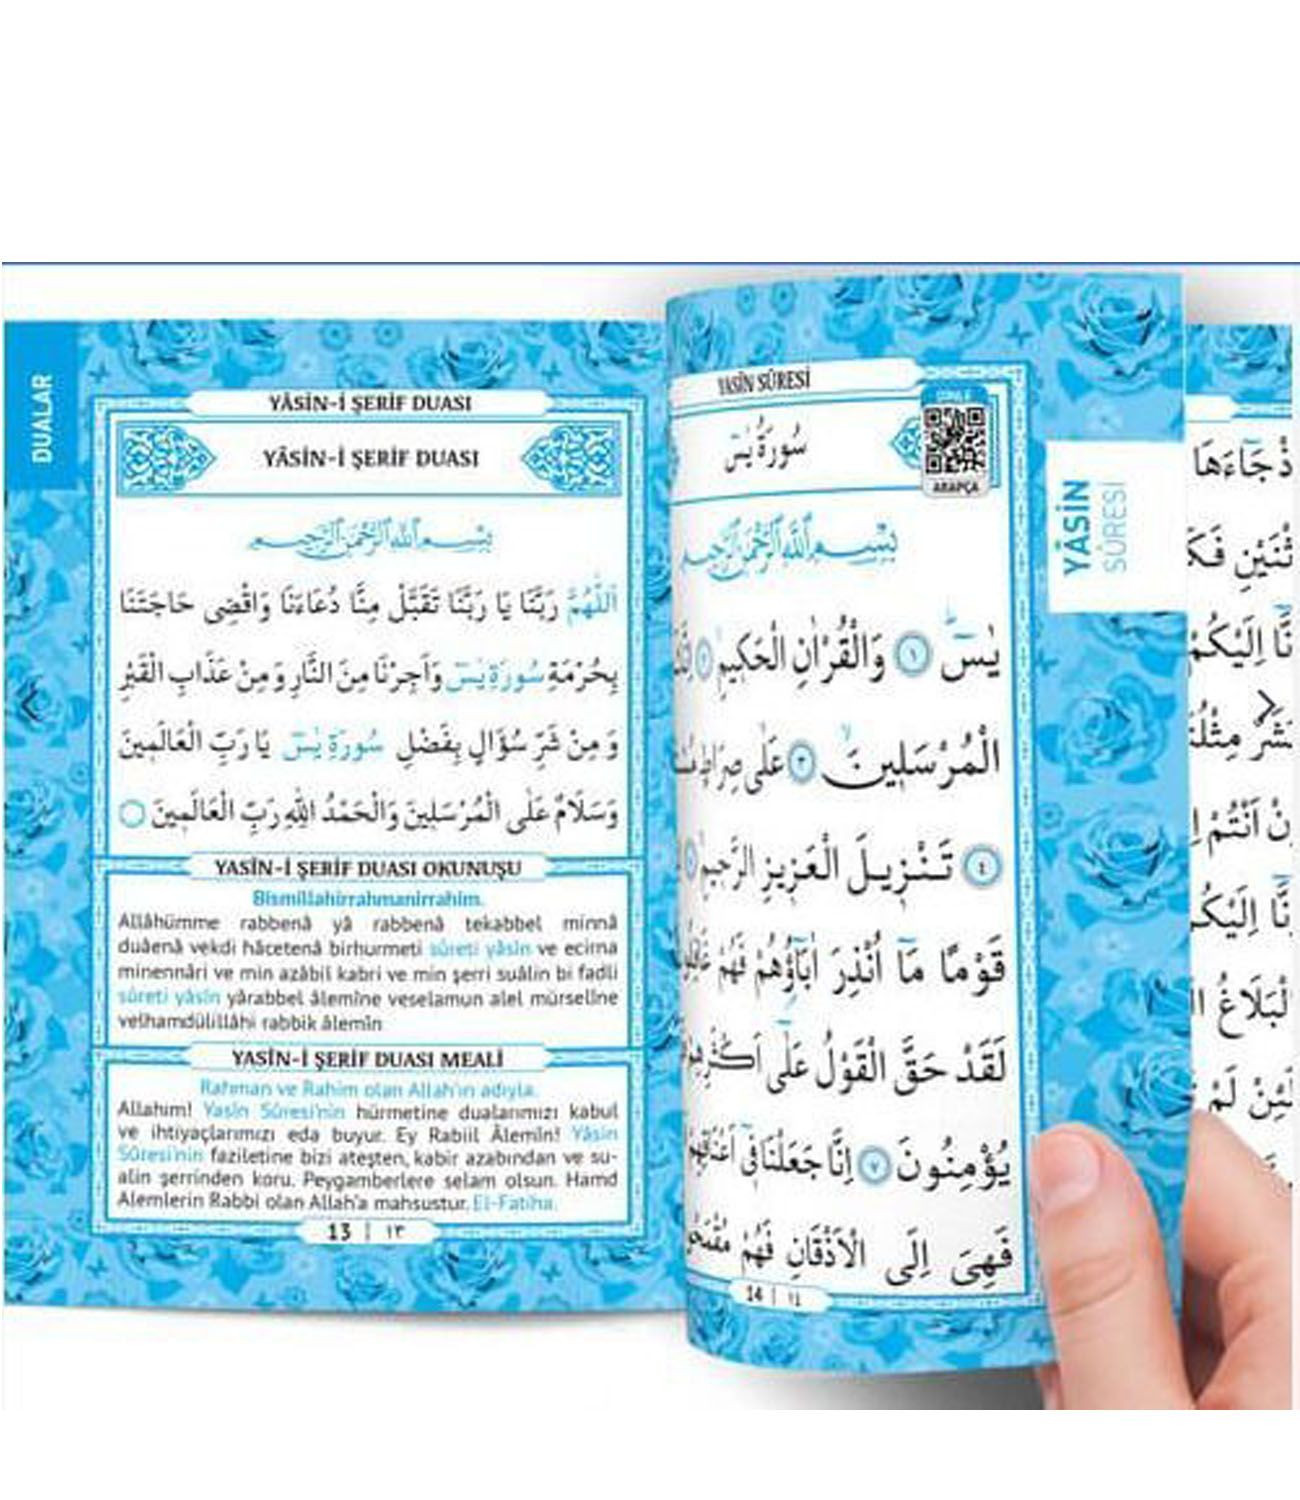 DUALAR
YÂSİN-İ ŞERİF DUASI
YÂSİN-İ ŞERİF DUASI
بِسْمِ اللّٰهِ الرَّحْمٰنِ الرَّحِيمِ
اَللّٰهُمَّ رَبَّنَا يَا رَبَّنَا تَقَبَّلْ مِنَّا دُعَاءَنَا وَاقْضِى حَاجَتَنَا
بِحُرْمَةِ سُورَةِ يٰسٓ وَاَجِرْنَا مِنَ النَّارِ وَمِنْ عَذَابِ الْقَبْرِ
وَمِنْ شَرِّ سُؤَالٍ بِفَضْلِ سُورَةِ يٰسٓ يَا رَبَّ الْعَالَمِينَ
وَسَلَامٌ عَلَى الْمُرْسَلِينَ وَالْحَمْدُ اللّٰهِ رَبِّ الْعَالَمِينَ
YASİN-İ ŞERİF DUASI OKUNUŞU
Bismillahirrahmanirrahim.
Allâhümme rabbenâ yâ rabbenâ tekabbel minnâ
duâenâ vekdi hâcetenâ birhurmeti sûreti yâsin ve ecirna
minennâri ve min azâbil kabri ve min şerri suâlin bi fadli
sûreti yâsin yârabbel âlemîne veselamun alel mürselîne
velhamdülillâhi rabbik âlemîn
YASİN-İ ŞERİF DUASI MEALİ
Rahman ve Rahim olan Allah'ın adıyla.
Allahım! Yasin Sûresi'nin hürmetine dualarımızı kabul
ve ihtiyaçlarımızı eda buyur. Ey Rabiil Âlemin! Yâsin
Sûresi'nin faziletine bizi ateşten, kabir azabından ve su-
alin şerrinden koru. Peygamberlere selam olsun. Hamd
Alemlerin Rabbi olan Allah'a mahsustur. El-Fatiha.
13 | ١٣
YASİN SÛRESİ
سُورَةُ يٰسٓ
DİNLE
ARAPÇA
بِسْمِ اللّٰهِ الرَّحْمٰنِ الرَّحِيمِ
يٰسٓ ١ وَالْقُرْاٰنِ الْحَكِيمِ ٢
الْمُرْسَلِينَ ٣ عَلٰى صِرَاطٍ
٤ تَنْزِيلَ الْعَزِيزِ الرَّحِيمِ
قَوْمًا مَٓا اُنْذِرَ اٰبَٓاؤُهُمْ فَهُمْ
لَقَدْ حَقَّ الْقَوْلُ عَلٰٓى اَكْثَرِهِمْ
يُؤْمِنُونَ ٧ اِنَّا جَعَلْنَا فٓى اَعْنَاقِهِمْ
فَهِىَ اِلَى الْاَذْقَانِ فَهُمْ
14 | ١٤
YÂSİN
SÛRESİ
جَٓاءَهَا
اِلَيْكُمْ
مِثْلُنَا
اَنْتُمْ
الْبَلَاغُ
لَئِنْ لَمْ